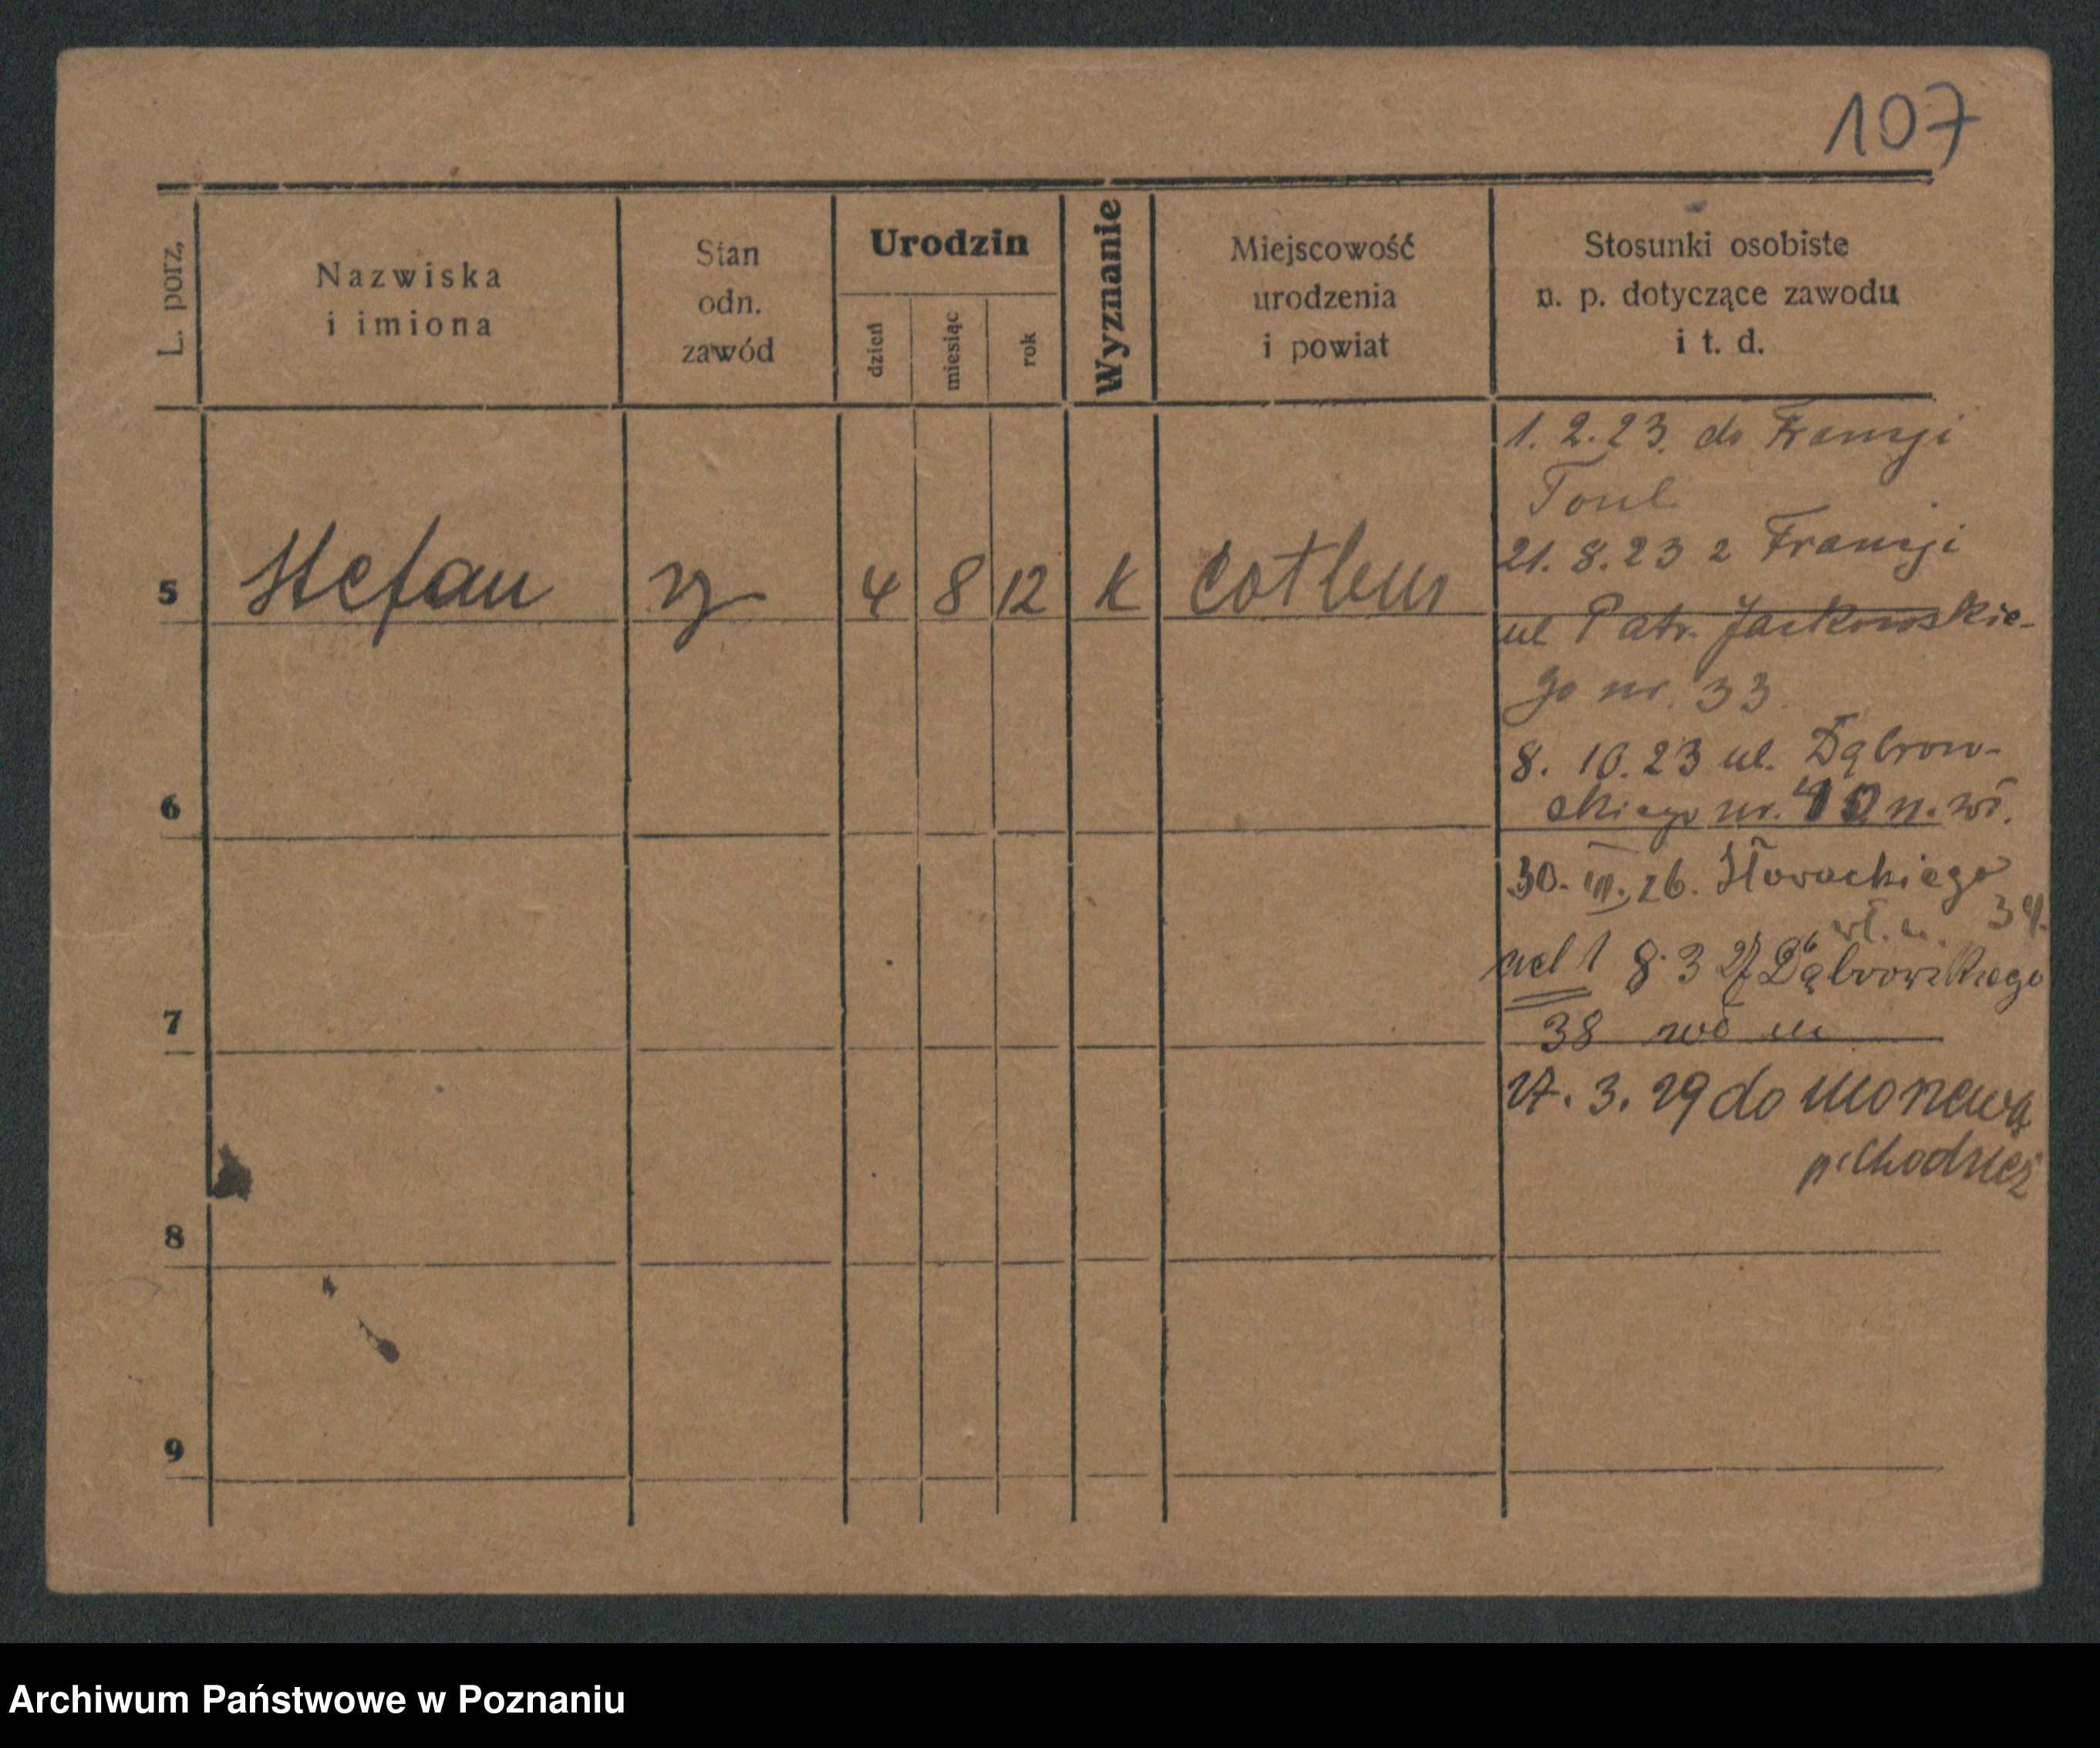 107
L. porz.
Nazwiska
i imiona
Stan
odn.
zawód
Urodzin
dzień
miesiąc
rok
Wyznanie
Miejscowość
urodzenia
i powiat
Stosunki osobiste
n. p. dotyczące zawodu
i t. d.
5 Stefan 4 8 12 k Cotbus
1. 2. 23. do Francji
Toul
21. 8. 23 z Francji
ul Patr. Jackowskie-
go nr. 33
8. 10. 23 ul. Dąbrow-
skiego nr. n. wł.
30. 26. Słowackiego
34.
wł. m.
8 3 27 Dąbrowskiego
38 m
3. 29 do
p. Chodzież
6
7
8
9
Archiwum Państwowe w Poznaniu